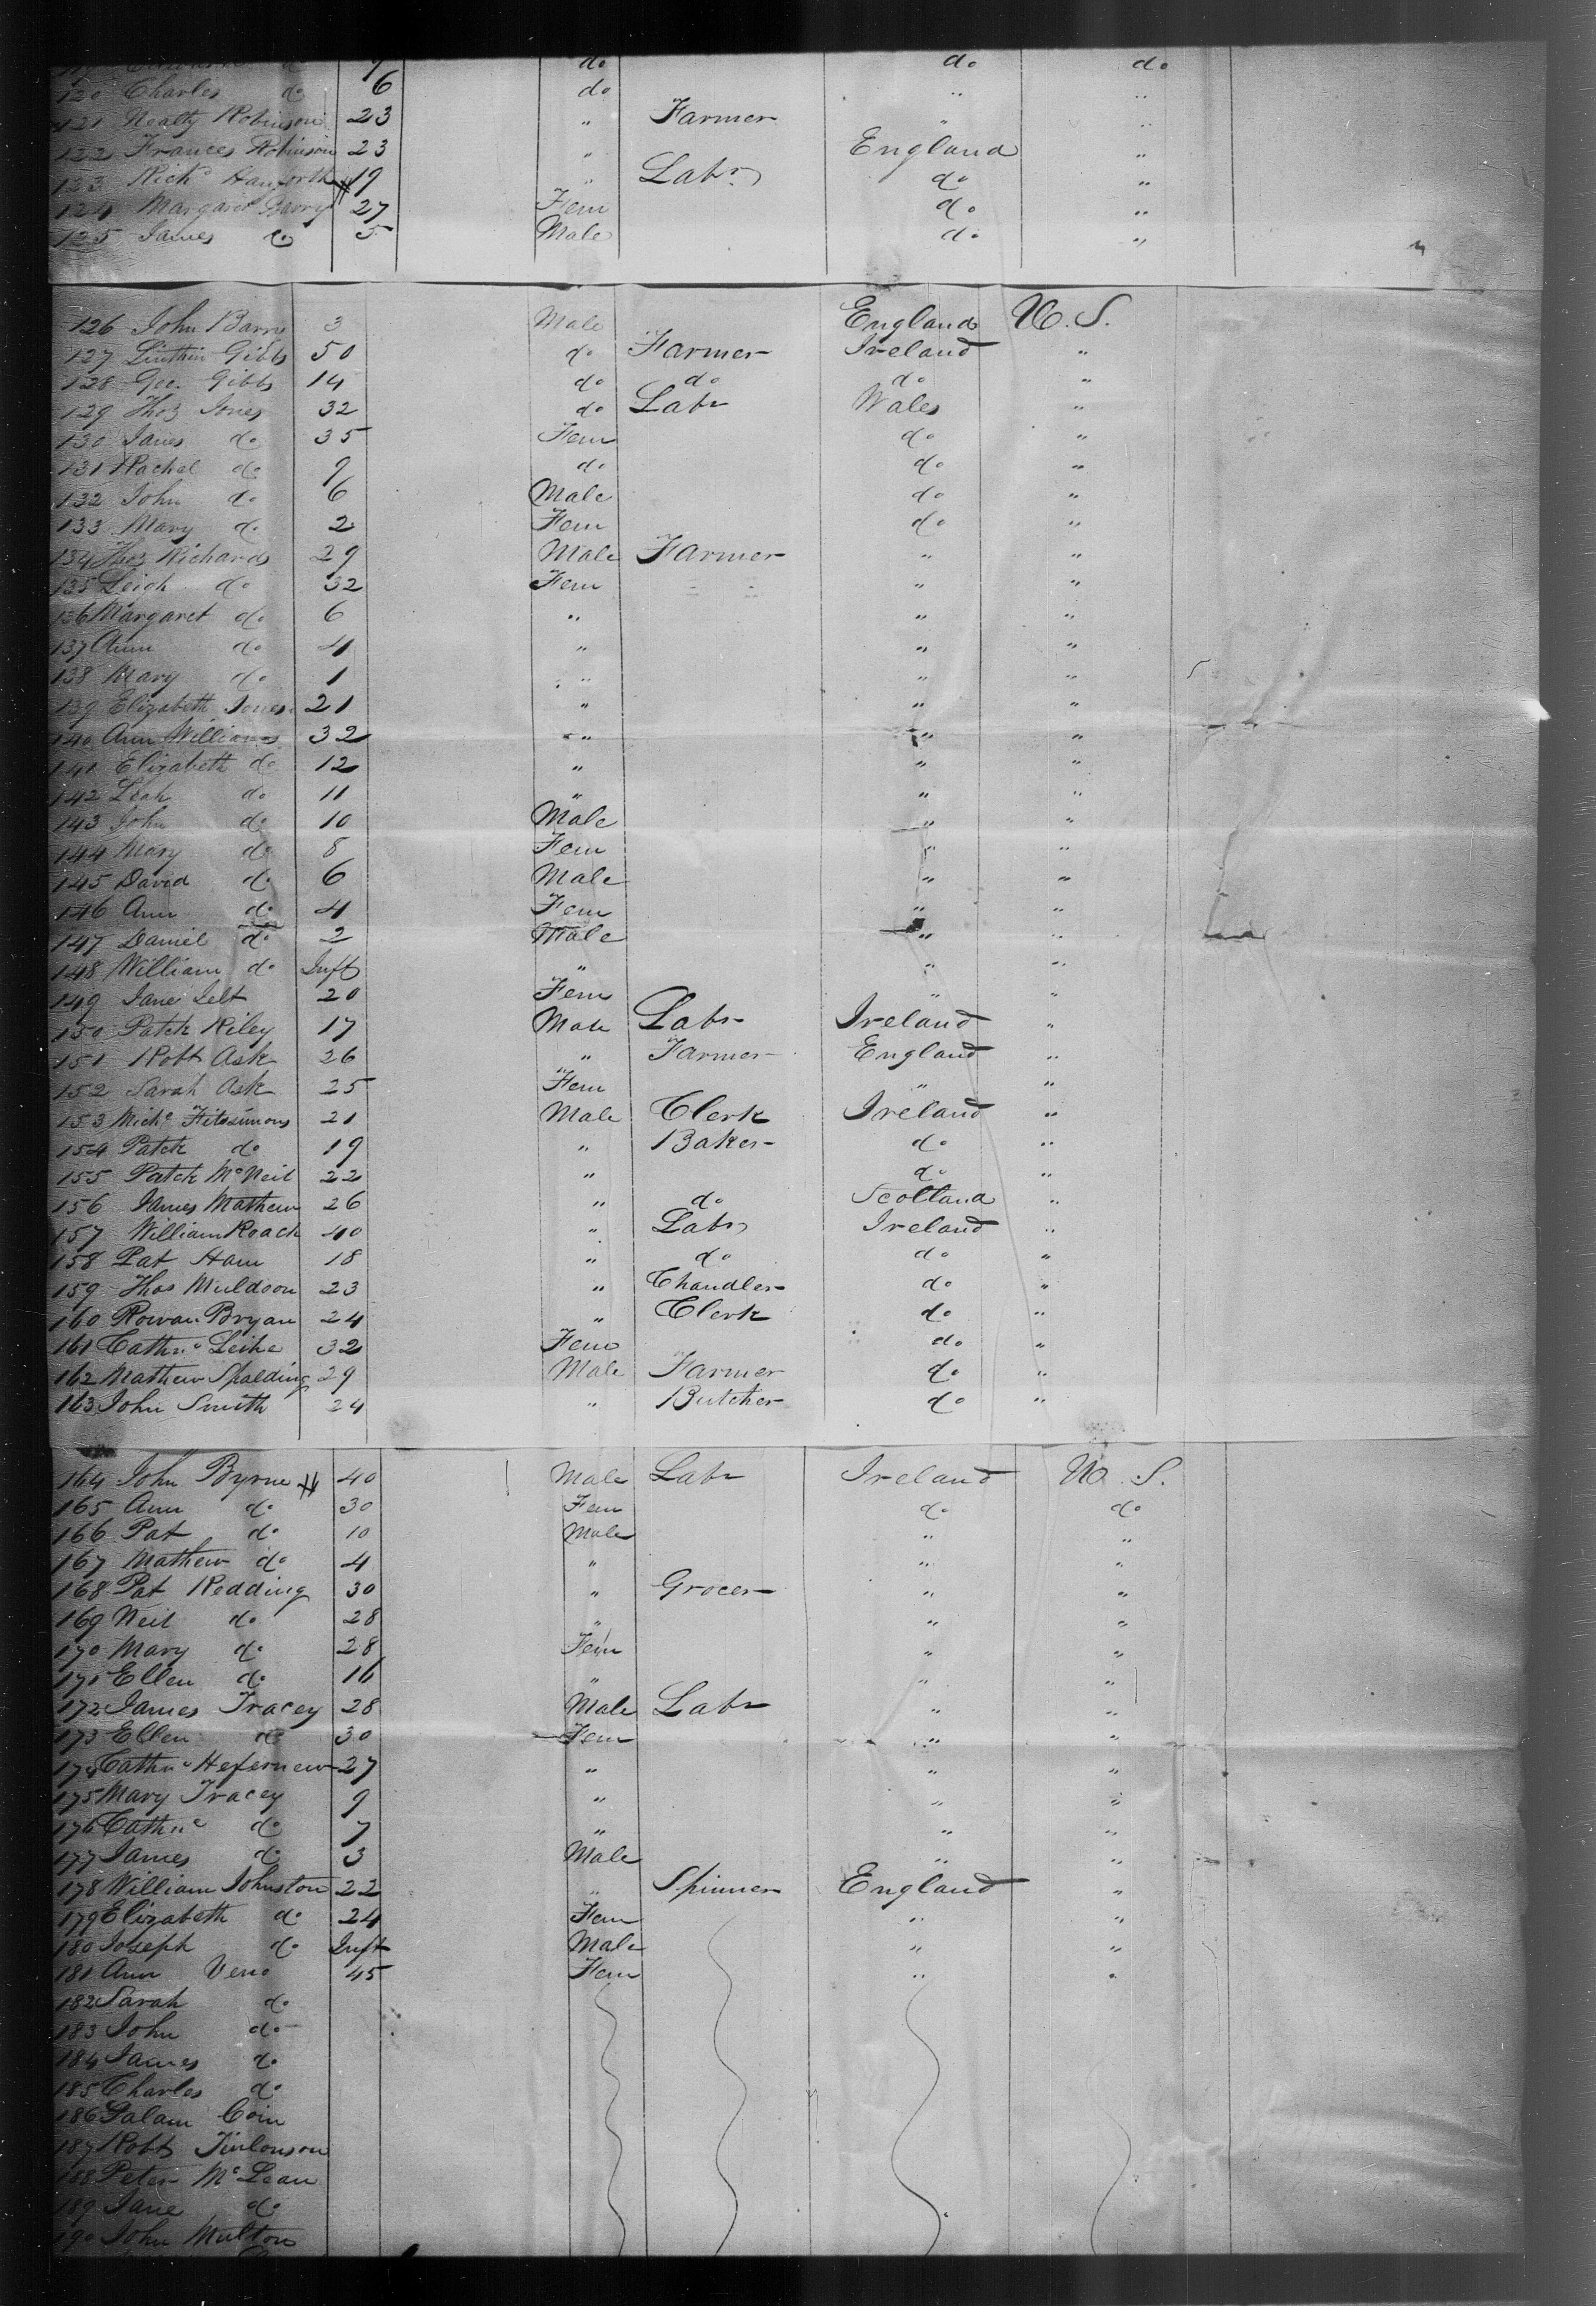 do 7 do do do
120 Charles do 6 do " "
121 Nealty Robinson 23 " Farmer " "
122 Frances Robinson 23 " England "
123 Richd 19 " Labr do "
124 Margaret Barry 27 Fem do "
125 James do 5 Male do "
126 John Barry 3 Male England U. S.
127 Gibbs 50 do Farmer Ireland "
128 Geo. Gibbs 14 do do do "
129 Thos Jones 32 do Labr Wales "
130 Janes do 35 Fem do "
131 Rachel do 9 do do "
132 John do 6 Male do "
133 Mary do 2 Fem do "
134 Thos Richards 29 Male Farmer " "
135 Leigh do 32 Fem " "
136 Margaret do 6 " " "
137 Ann do 4 " " "
138 Mary do 1 " " "
139 Elizabeth Jones 21 " " "
140 Ann Williams 32 " " "
141 Elizabeth do 12 " " "
142 Leah do 11 " " "
143 John do 10 Male " "
144 Mary do 8 Fem " "
145 David do 6 Male " "
146 Ann do 4 Fem " "
147 Daniel do 2 Male " "
148 William do Inft " " "
149 Jane 20 Fem " "
150 Patck Riley 17 Male Labr Ireland "
151 Robt Ask 26 " Farmer England "
152 Sarah Ask 25 Fem " "
153 Michl Fitssimons 21 Male Clerk Ireland "
154 Patck do 19 " Baker do "
155 Patck McNeil 22 " do "
156 James Mathew 26 " do Scotland "
157 William Roach 40 " Labr Ireland "
158 Pat Ham 18 " do do "
159 Thos Muldoon 23 " Chandler do "
160 Rowan Bryan 24 " Clerk do "
161 Cathne Leihe 32 Fem do "
162 Mathew Spalding 29 Male Farmer do "
163 John Smith 24 " Butcher do "
164 John Byrne 40 Male Labr Ireland U. S.
165 Ann do 30 Fem do do
166 Pat do 10 Male " "
167 Mathew do 4 " " "
168 Pat Redding 30 " Grocer " "
169 Neil do 28 " " "
170 Mary do 28 Fem " "
171 Ellen do 16 " " "
172 James Tracey 28 Male Labr " "
173 Ellen do 30 Fem " "
174 Cathne Hefernew 27 " " "
175 Mary Tracey 9 " " "
176 Cathne do 7 " " "
177 James do 3 Male " "
178 William Johnston 22 " Spinner England "
179 Elizabeth do 24 Fem " "
180 Joseph do Inft Male " "
181 Ann Veno 45 Fem " "
182 Sarah do
183 John do
184 James do
185 Charles do
186 Coin
187 Robt Tinlonson
188 Peter McLean
189 Jane do
190 John Multon